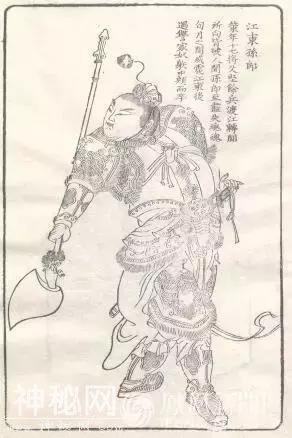 江東孫郎
策年十七將父堅餘兵渡江轉鬪
所向皆破人聞孫郎至盡失魂魄
旬月之間威震江東後
遇讐家奴射中頰而卒
神秘网